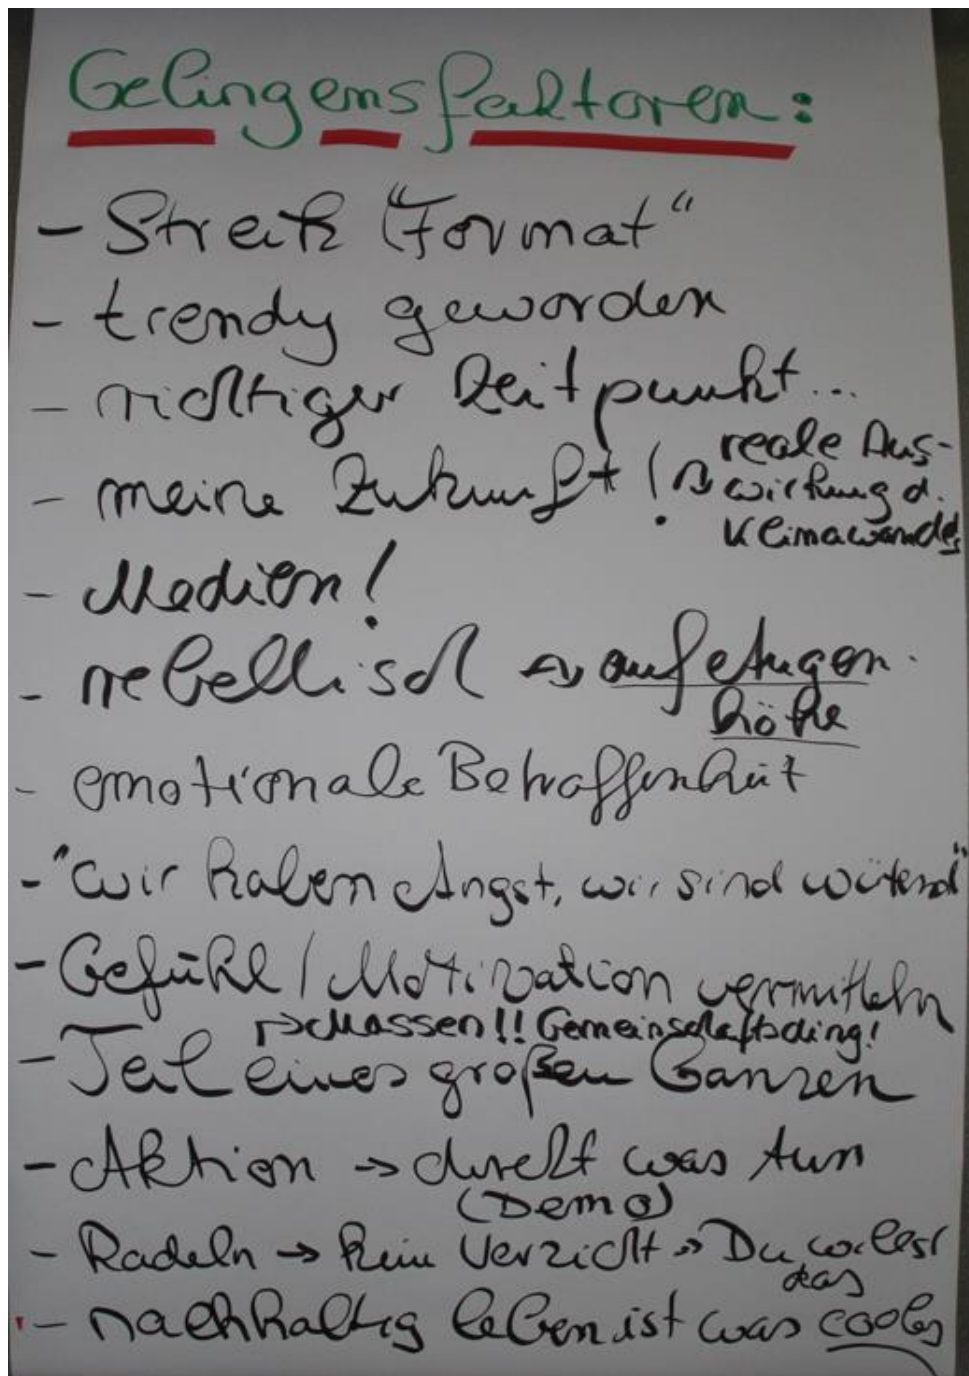 Gelingensfaktoren:
- Streik "Format"
- trendy geworden
- richtiger Zeitpunkt...
- meine Zukunft! → reale Aus-
wirkung d.
Klimawandels
- Medien!
- rebellisch → auf Augen-
höhe
- emotionale Betroffenheit
- "wir haben Angst, wir sind wütend"
- Gefühl / Motivation vermitteln
→ Massen!! Gemeinschaftsding!
- Teil eines großen Ganzen
- Aktion → direkt was tun
(Demo)
- Radeln → kein Verzicht → Du willst
das
- nachhaltig leben ist was cooles